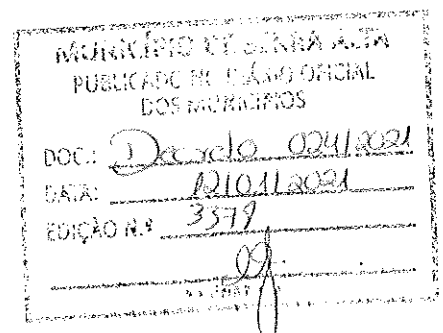 MUNICÍPIO DE SERRA ALTA
PUBLICADO NO DIÁRIO OFICIAL
DOS MUNICÍPIOS
DOC.: Decreto 024/2021
DATA: 12/01/2021
EDIÇÃO N.º 3379